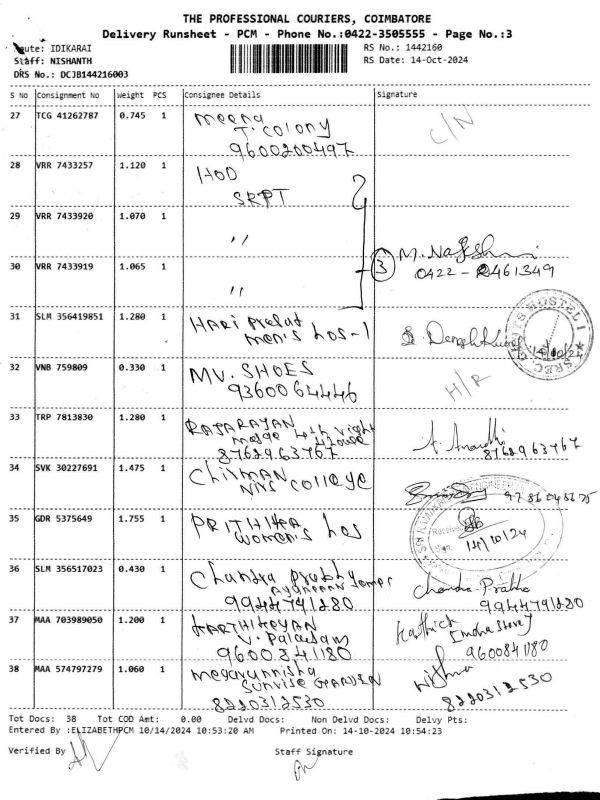 THE PROFESSIONAL COURIERS, COIMBATORE
Delivery Runsheet - PCM - Phone No.:0422-3505555 - Page No.:3
Route: IDIKARAI RS No.: 1442160
Staff: NISHANTH RS Date: 14-Oct-2024
DRS No.: DCJB144216003
S No Consignment No Weight PCS Consignee Details Signature
27 TCG 41262787 0.745 1 meena C/N
T. Colony
9600200497
28 VRR 7433257 1.120 1 HOD
SRPT
29 VRR 7433920 1.070 1 "
3 M.
30 VRR 7433919 1.065 1 0422 - 2461349
"
31 SLM 356419851 1.280 1 HARI
men's hos-1 14/10/24
SREC GENTS HOSTEL I
32 VNB 759809 0.330 1 MV. SHOES H/R
9360064446
33 TRP 7813830 1.280 1 RAJARAJAN
8762963767 8762963767
34 SVK 30227691 1.475 1
College
35 GDR 5375649 1.755 1 PRITHIKA
women's hos Received
Sign. 14/10/24
36 SLM 356517023 0.430 1 Chandra prabhu Chandra Prabha
9944791280 9944791280
37 MAA 703989050 1.200 1 KARTHIKEYAN Karthick
V. Palayam
9600841180 9600841180
38 MAA 574797279 1.060 1
Sunrise GARDEN
8220312530 8220312530
Tot Docs: 38 Tot COD Amt: 0.00 Delvd Docs: Non Delvd Docs: Delvy Pts:
Entered By :ELIZABETHPCM 10/14/2024 10:53:20 AM Printed On: 14-10-2024 10:54:23
Verified By Staff Signature